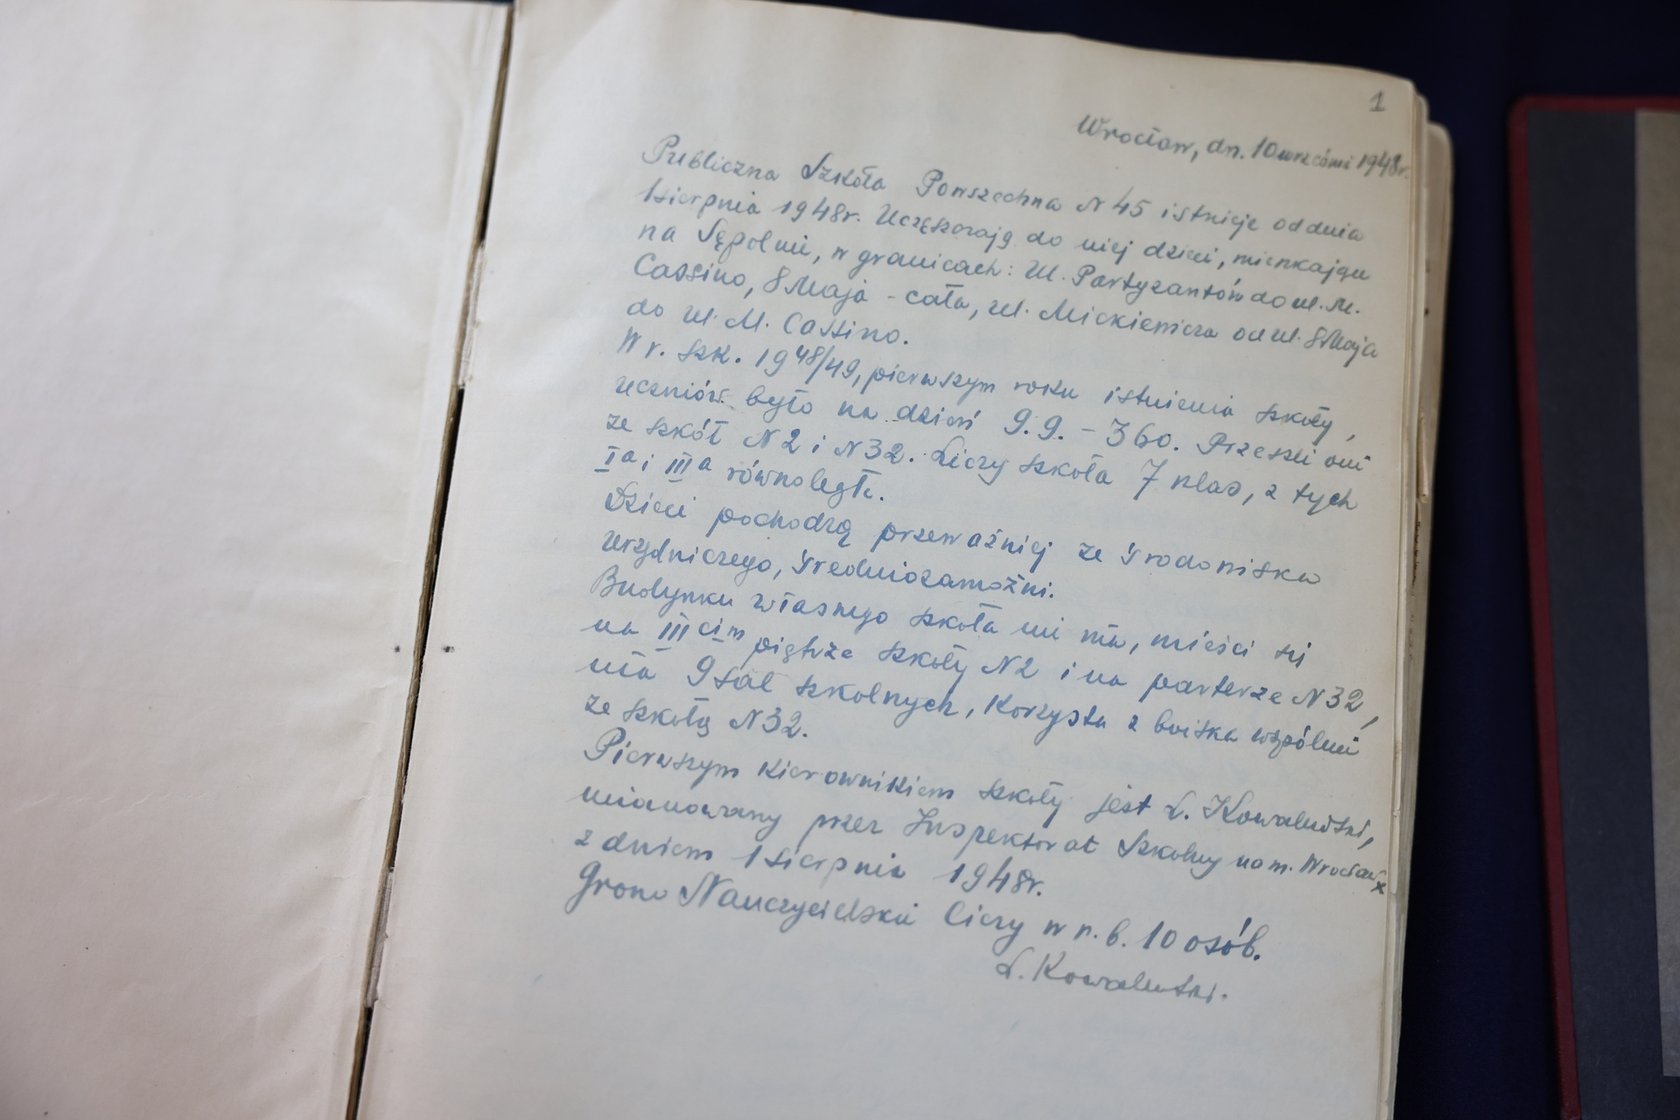 1
Wrocław, dn. 10 września 1948r.
Publiczna Szkoła Powszechna N 45 istnieje od dnia
1 sierpnia 1948r. Uczęszczają do niej dzieci, mieszkające
na Sępolnie, w granicach: Ul. Partyzantów do ul. M.
Cassino, 8 Maja - cała, ul. Mickiewicza od ul. 8 Maja
do ul. M. Cassino.
W r. szk. 1948/49, pierwszym roku istnienia szkoły,
uczniów było na dzień 9.9. - 360. Przeszli oni
ze szkół N 2 i N 32. Liczy szkoła 7 klas, z tych
Ia i IIIa równoległe.
Dzieci pochodzą przeważniej ze środowiska
urzędniczego, średniozamożni.
Budynku własnego szkoła nie ma, mieści się
na IIIcim piętrze szkoły N 2 i na parterze N 32,
ma 9 sal szkolnych, korzysta z boiska wspólnie
ze szkołą N 32.
Pierwszym kierownikiem szkoły jest L. Kowalewski,
mianowany przez Inspektorat Szkolny na m. Wrocław
z dniem 1 sierpnia 1948r.
Grono Nauczycielskie liczy w r. b. 10 osób.
L. Kowalewski.